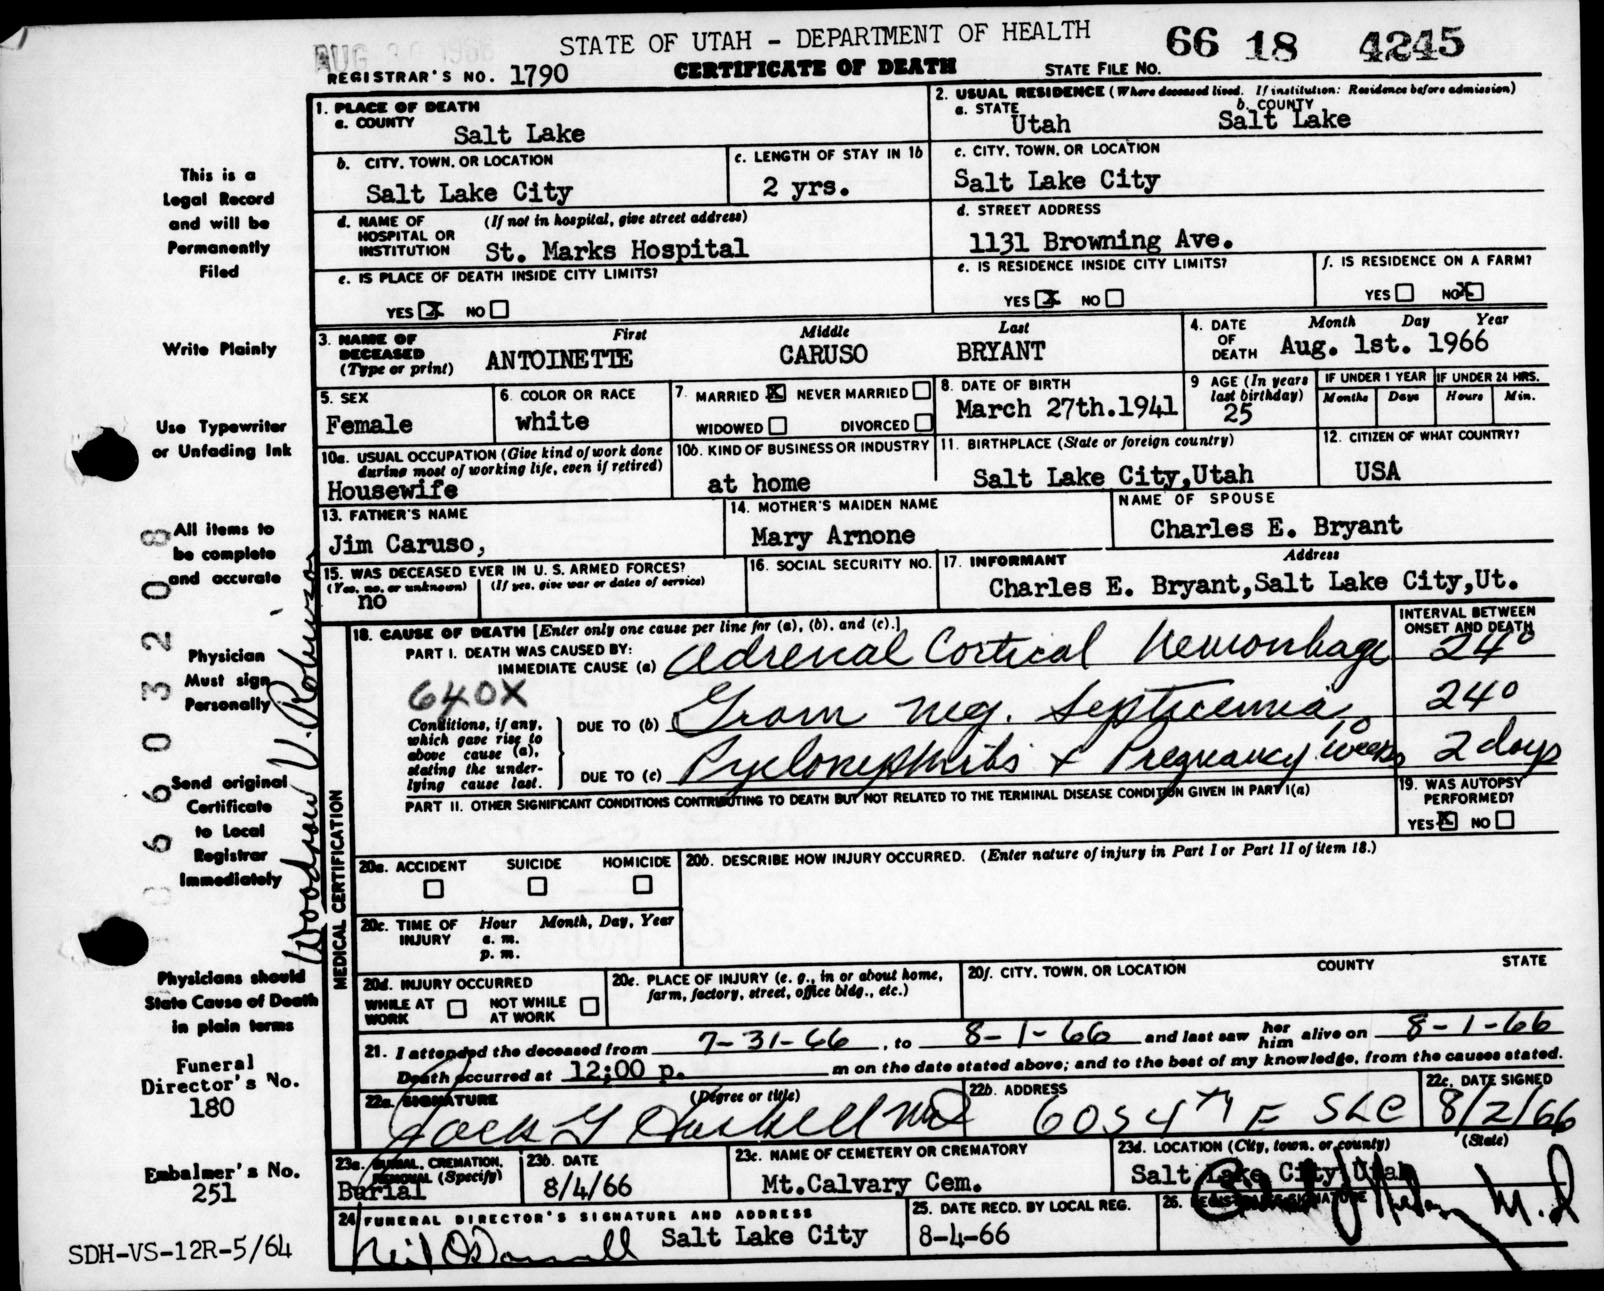 STATE OF UTAH - DEPARTMENT OF HEALTH
66 18 4245
REGISTRAR'S NO. 1790
CERTIFICATE OF DEATH
STATE FILE NO.
1. PLACE OF DEATH
a. COUNTY
Salt Lake
2. USUAL RESIDENCE (Where deceased lived. If institution: Residence before admission)
a. STATE
Utah
b. COUNTY
Salt Lake
b. CITY, TOWN, OR LOCATION
Salt Lake City
c. LENGTH OF STAY IN 1b
2 yrs.
c. CITY, TOWN, OR LOCATION
Salt Lake City
d. NAME OF HOSPITAL OR INSTITUTION
(If not in hospital, give street address)
St. Marks Hospital
d. STREET ADDRESS
1131 Browning Ave.
e. IS PLACE OF DEATH INSIDE CITY LIMITS?
YES X NO
e. IS RESIDENCE INSIDE CITY LIMITS?
YES X NO
f. IS RESIDENCE ON A FARM?
YES NO X
3. NAME OF DECEASED (Type or print)
First Middle Last
ANTOINETTE CARUSO BRYANT
4. DATE OF DEATH
Month Day Year
Aug. 1st. 1966
5. SEX
Female
6. COLOR OR RACE
white
7. MARRIED X NEVER MARRIED
WIDOWED DIVORCED
8. DATE OF BIRTH
March 27th.1941
9 AGE (In years last birthday)
25
IF UNDER 1 YEAR
Months Days
IF UNDER 24 HRS.
Hours Min.
10a. USUAL OCCUPATION (Give kind of work done during most of working life, even if retired)
Housewife
10b. KIND OF BUSINESS OR INDUSTRY
at home
11. BIRTHPLACE (State or foreign country)
Salt Lake City,Utah
12. CITIZEN OF WHAT COUNTRY?
USA
13. FATHER'S NAME
Jim Caruso,
14. MOTHER'S MAIDEN NAME
Mary Arnone
NAME OF SPOUSE
Charles E. Bryant
15. WAS DECEASED EVER IN U. S. ARMED FORCES?
(Yes, no, or unknown) (If yes, give war or dates of service)
no
16. SOCIAL SECURITY NO.
17. INFORMANT Address
Charles E. Bryant,Salt Lake City,Ut.
MEDICAL CERTIFICATION
18. CAUSE OF DEATH [Enter only one cause per line for (a), (b), and (c).]
INTERVAL BETWEEN ONSET AND DEATH
PART I. DEATH WAS CAUSED BY:
IMMEDIATE CAUSE (a) Adrenal Cortical Hemorrhage 24°
640X
Conditions, if any, which gave rise to above cause (a), stating the underlying cause last.
DUE TO (b) Gram neg. Septicemia 24°
DUE TO (c) Pyelonephritis + Pregnancy 10 weeks 2 days
PART II. OTHER SIGNIFICANT CONDITIONS CONTRIBUTING TO DEATH BUT NOT RELATED TO THE TERMINAL DISEASE CONDITION GIVEN IN PART I(a)
19. WAS AUTOPSY PERFORMED?
YES X NO
20a. ACCIDENT SUICIDE HOMICIDE
20b. DESCRIBE HOW INJURY OCCURRED. (Enter nature of injury in Part I or Part II of item 18.)
20c. TIME OF INJURY
Hour Month, Day, Year
a. m.
p. m.
20d. INJURY OCCURRED
WHILE AT WORK NOT WHILE AT WORK
20e. PLACE OF INJURY (e. g., in or about home, farm, factory, street, office bldg., etc.)
20f. CITY, TOWN, OR LOCATION COUNTY STATE
21. I attended the deceased from 7-31-66, to 8-1-66 and last saw her him alive on 8-1-66
Death occurred at 12;00 p. m on the date stated above; and to the best of my knowledge, from the causes stated.
22a. SIGNATURE (Degree or title)
22b. ADDRESS
605 4th E SLC
22c. DATE SIGNED
8/2/66
23a. BURIAL, CREMATION, REMOVAL (Specify)
Burial
23b. DATE
8/4/66
23c. NAME OF CEMETERY OR CREMATORY
Mt.Calvary Cem.
23d. LOCATION (City, town, or county) (State)
Salt Lake City,Utah
24 FUNERAL DIRECTOR'S SIGNATURE AND ADDRESS
Neil O'Donnell Salt Lake City
25. DATE RECD. BY LOCAL REG.
8-4-66
26. REGISTRAR'S SIGNATURE
M.D
This is a
Legal Record
and will be
Permanently
Filed
Write Plainly
Use Typewriter
or Unfading Ink
All items to
be complete
and accurate
Physician
Must sign
Personally
Send original
Certificate
to Local
Registrar
Immediately
Physicians should
State Cause of Death
in plain terms
Funeral
Director's No.
180
Embalmer's No.
251
SDH-VS-12R-5/64
Woodrow V. Robinson